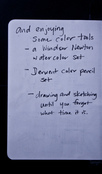 and enjoying
Some color tools
- a Windsor Newton
watercolor set
- Derwent color pencil
set
- drawing and sketching
until you forget
what time it is.